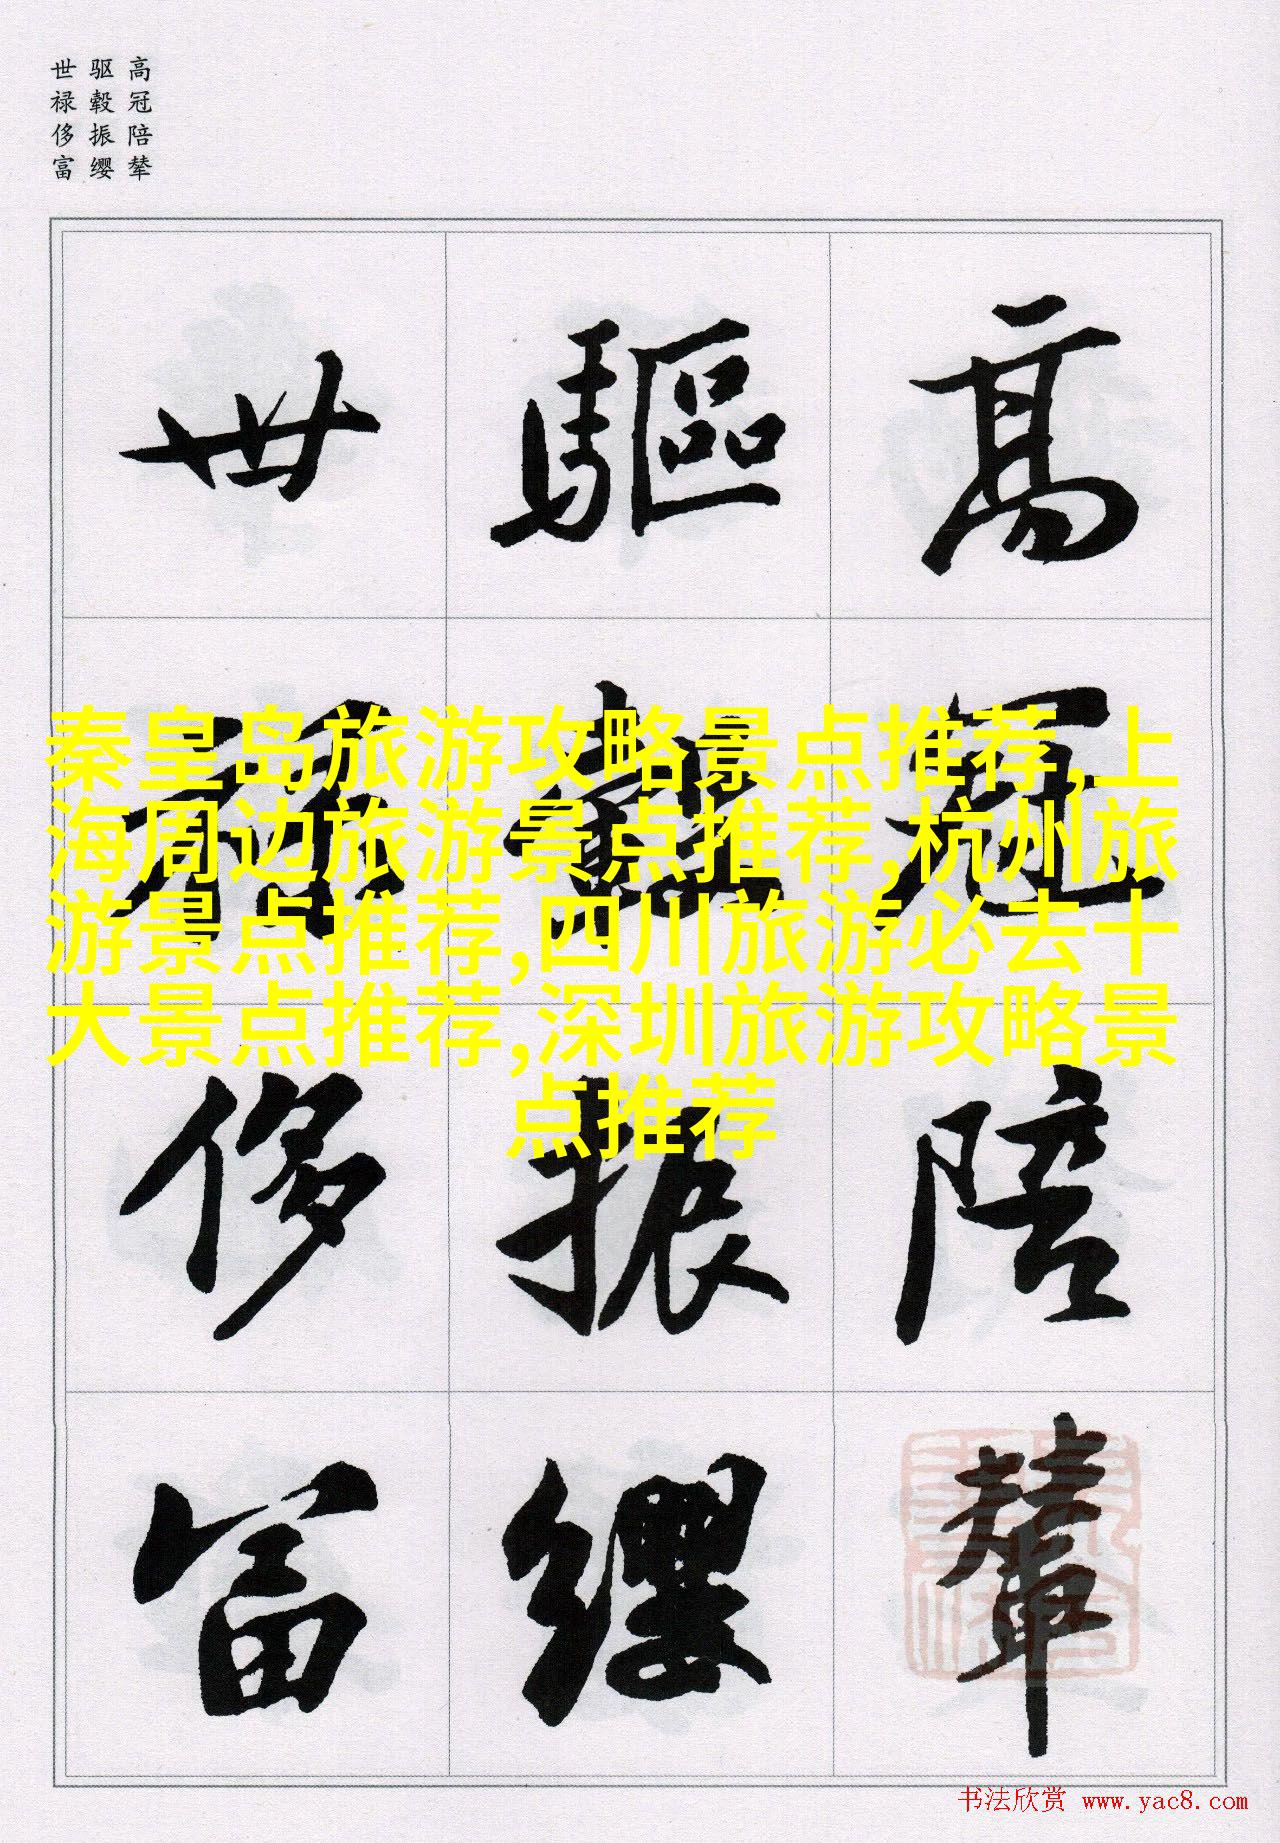 高冠陪辇
驱毂振缨
世禄侈富
高冠陪輦
驅轂振纓
世禄侈富
秦皇岛旅游攻略景点推荐,上
海周边旅游景点推荐,杭州旅
游景点推荐,四川旅游必去十
大景点推荐,深圳旅游攻略景
点推荐
书法欣赏 www.yac8.com